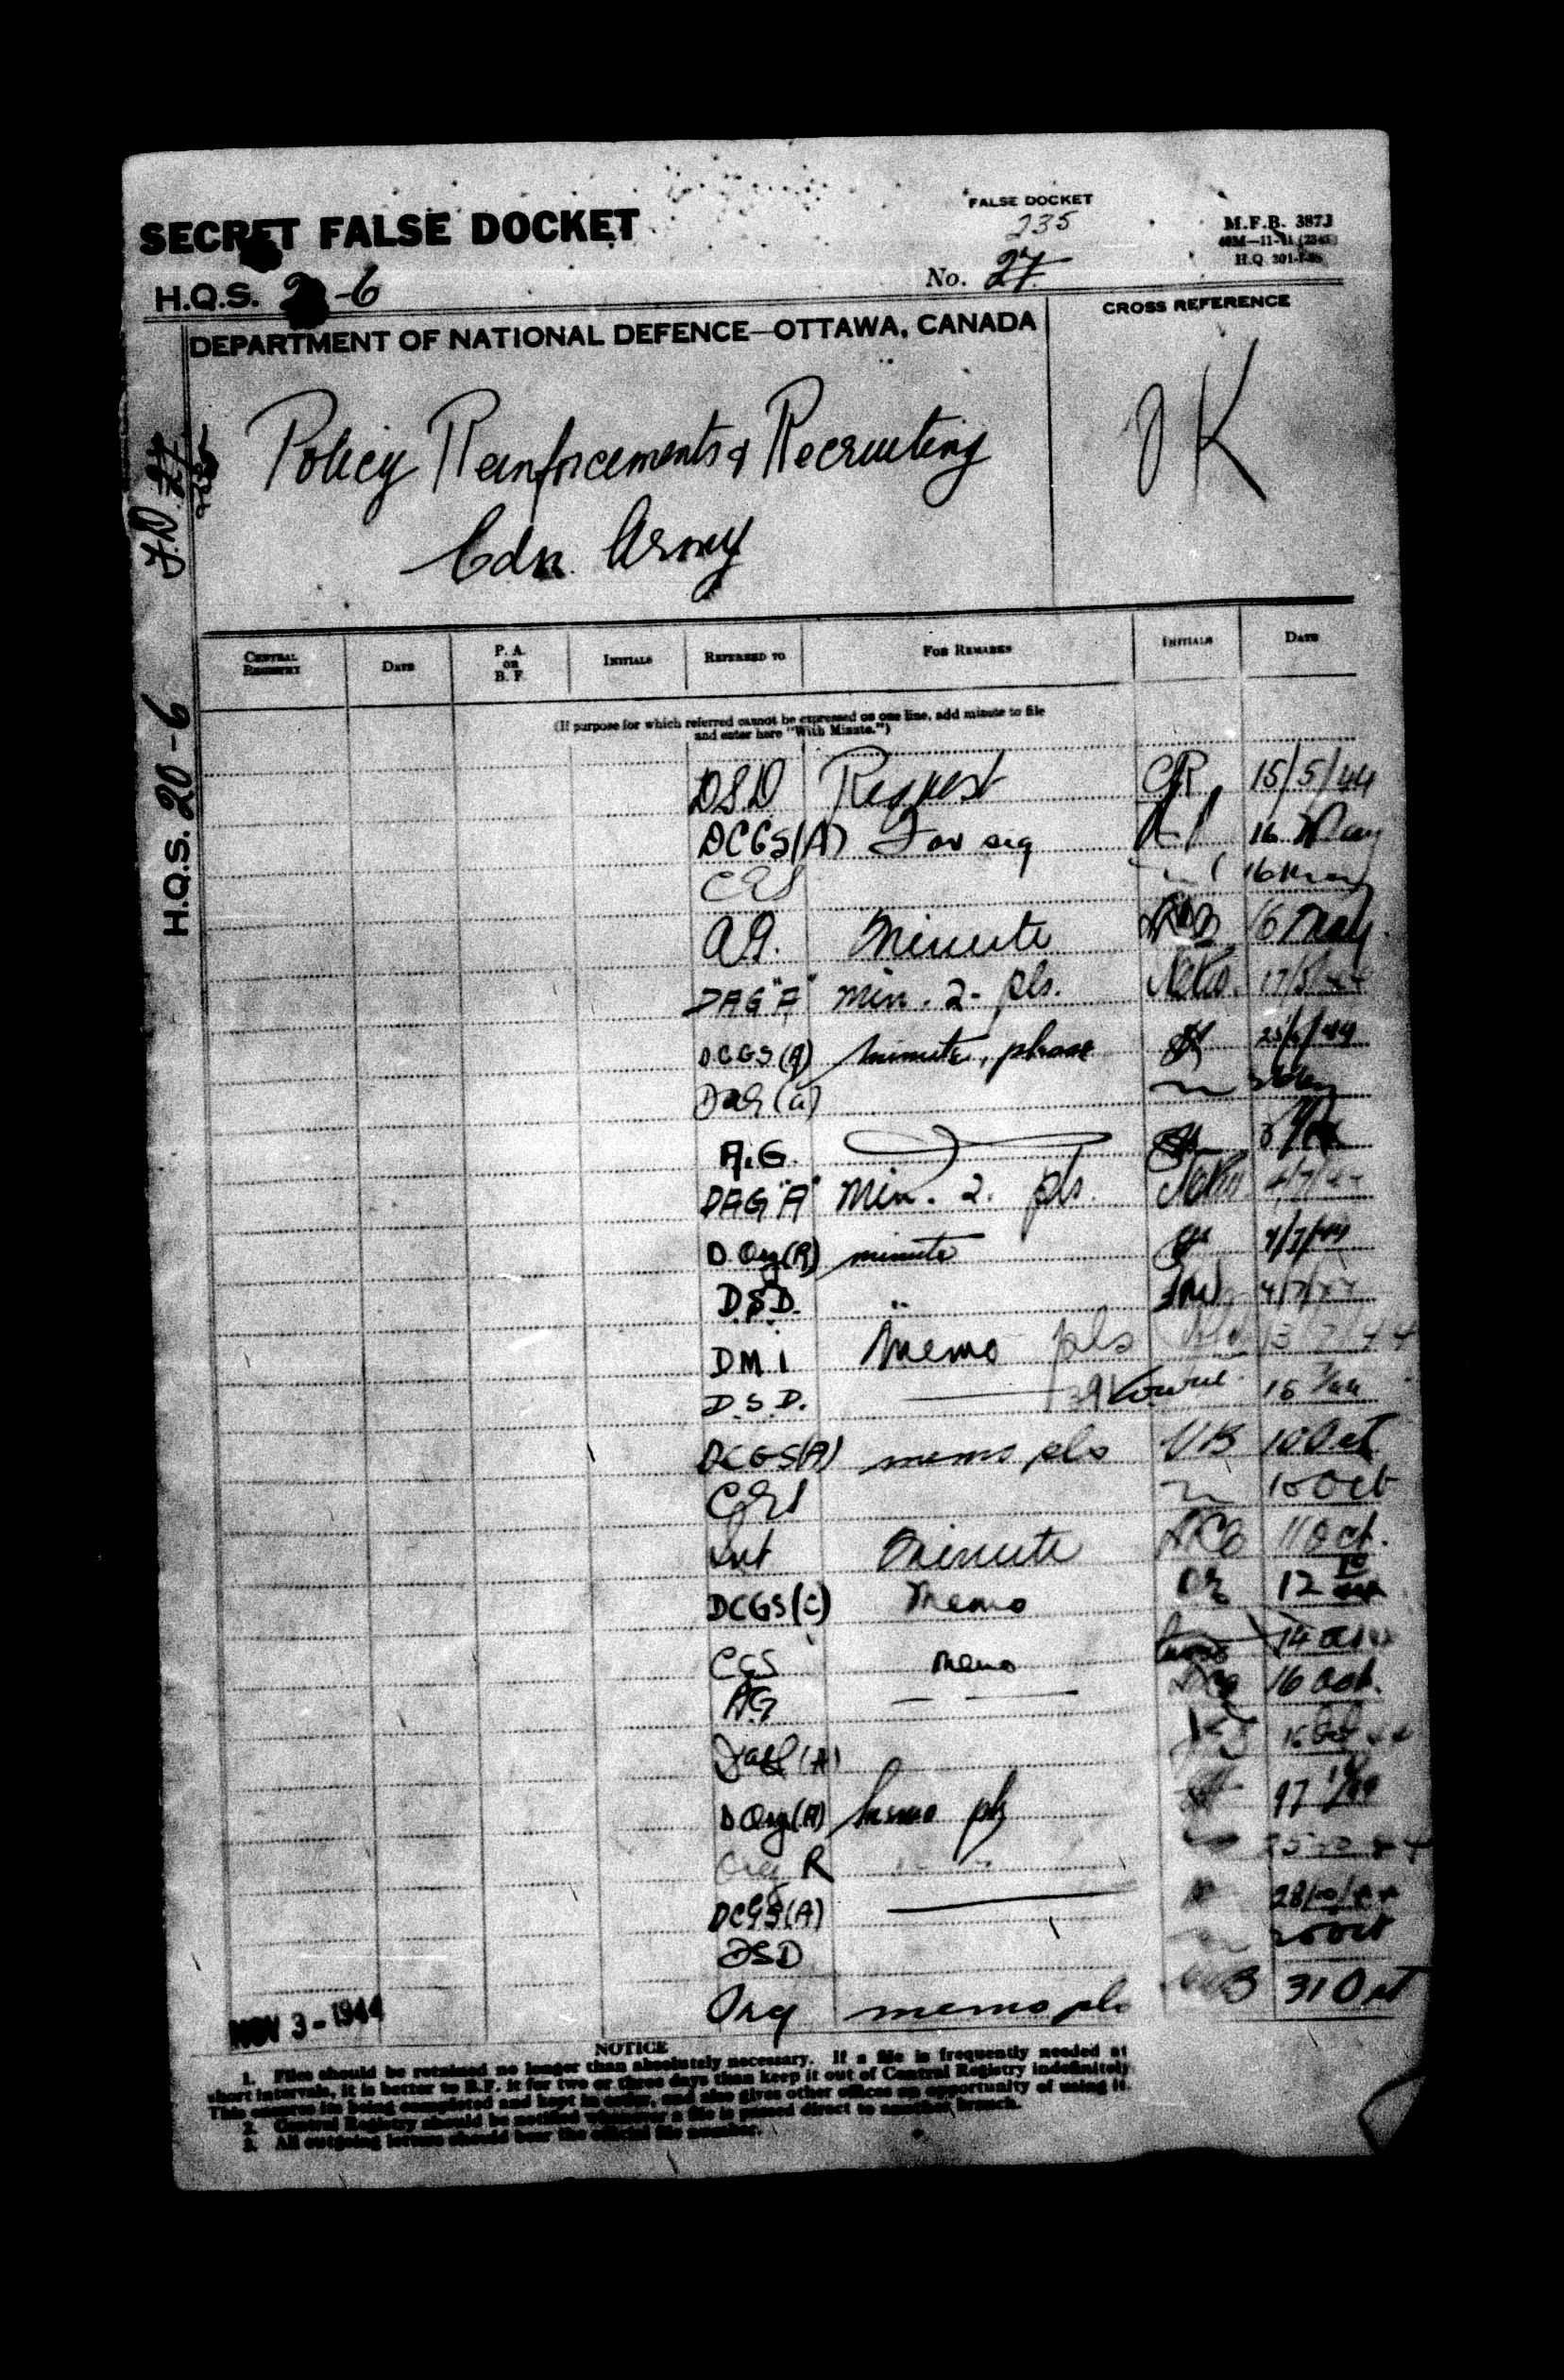 SECRET FALSE DOCKET
FALSE DOCKET
235
No. 27
M.F.B. 387J
H.Q.S. -6
CROSS REFERENCE
DEPARTMENT OF NATIONAL DEFENCE—OTTAWA, CANADA
OK
Policy Reinforcements & Recruiting
Cdn. Army
F.D. 27
H.Q.S. 20-6
CENTRAL REGISTRY DATE P. A. OR B. F. INITIALS REFERRED TO FOR REMARKS INITIALS DATE
(If purpose for which referred cannot be expressed on one line, add minute to file
and enter here "With Minute.")
DSD Request CR 15/5/44
DCGS(A) For sig 16 May
CGS 16 May
A.G. Minute 16 May
DAG "A" min. 2- pls. 17/5/44
DCGS(A) minute, please
DAG (a)
A.G.
DAG "A" Min. 2. pls.
D Org(R) minute 4/7/44
D.S.D. " 4/7/44
DMI Memo pls 13/7/44
D.S.D. 15
DCGS(A) memo pls 10 Oct
CGS 10 Oct
Minute 11 Oct.
DCGS(C) Memo 12
CGS memo 14 Oct
AG — — 16 Oct.
DAG (A)
D Org(A) memo pls
Org R
DCGS(A)
DSD Oct
Org memo pls 31 Oct
NOV 3 - 1944
NOTICE
1. Files should be retained no longer than absolutely necessary. If a file is frequently needed at
short intervals, it is better to B.F. it for two or three days than keep it out of Central Registry indefinitely.
This ensures its being completed and kept in order, and also gives other offices an opportunity of using it.
2. Central Registry should be notified whenever a file is passed direct to another branch.
3. All outgoing letters should bear the official file number.